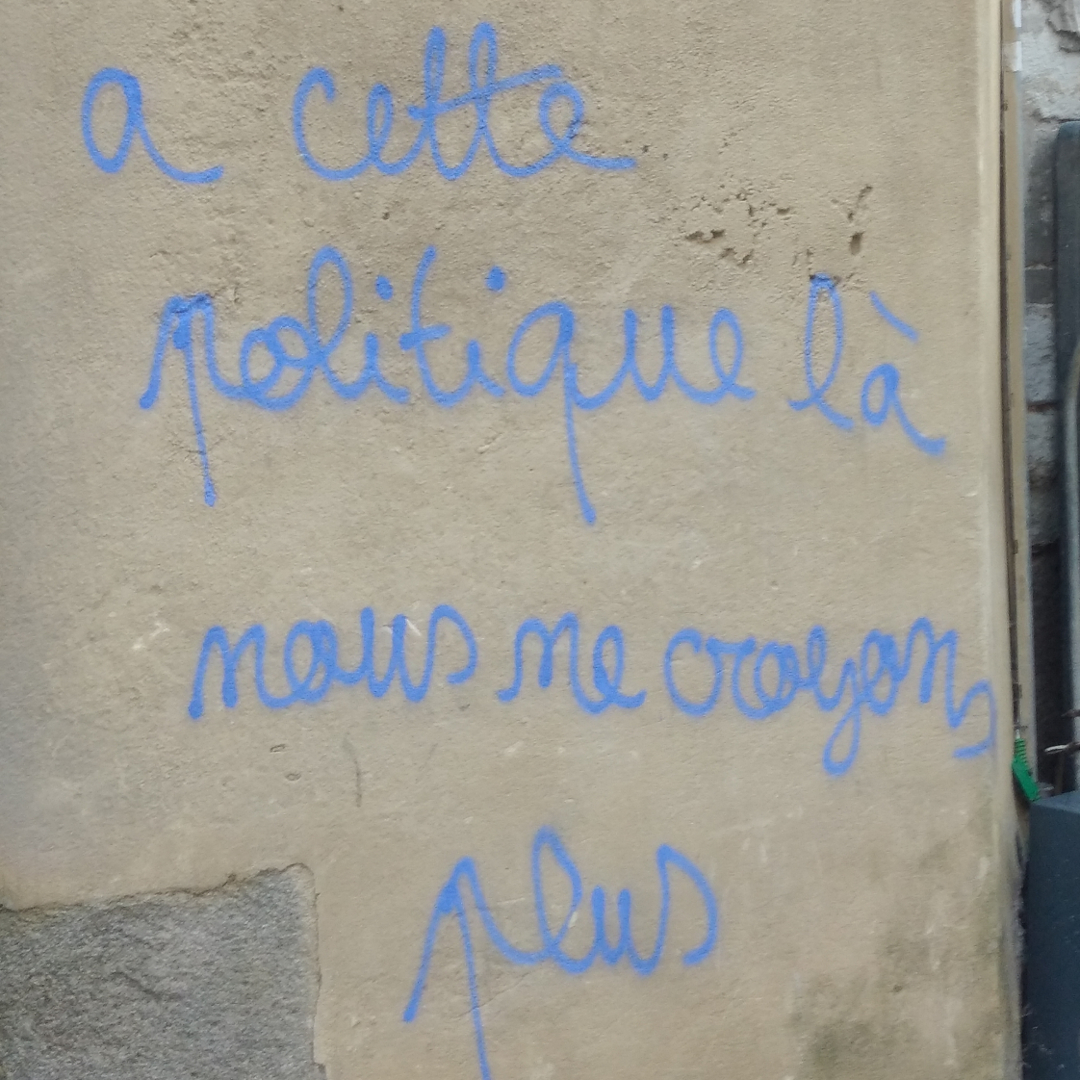 a cette
politique là
nous ne croyons
plus